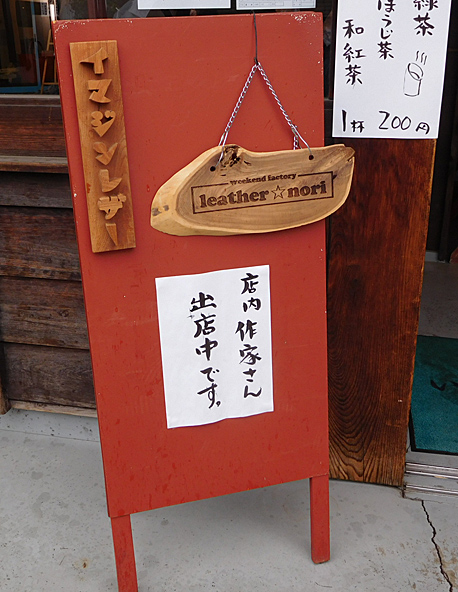 イマジンレザー
weekend factory
leather☆nori
店内 作家さん
出店中です。
緑茶
ほうじ茶
和紅茶
1杯 200円